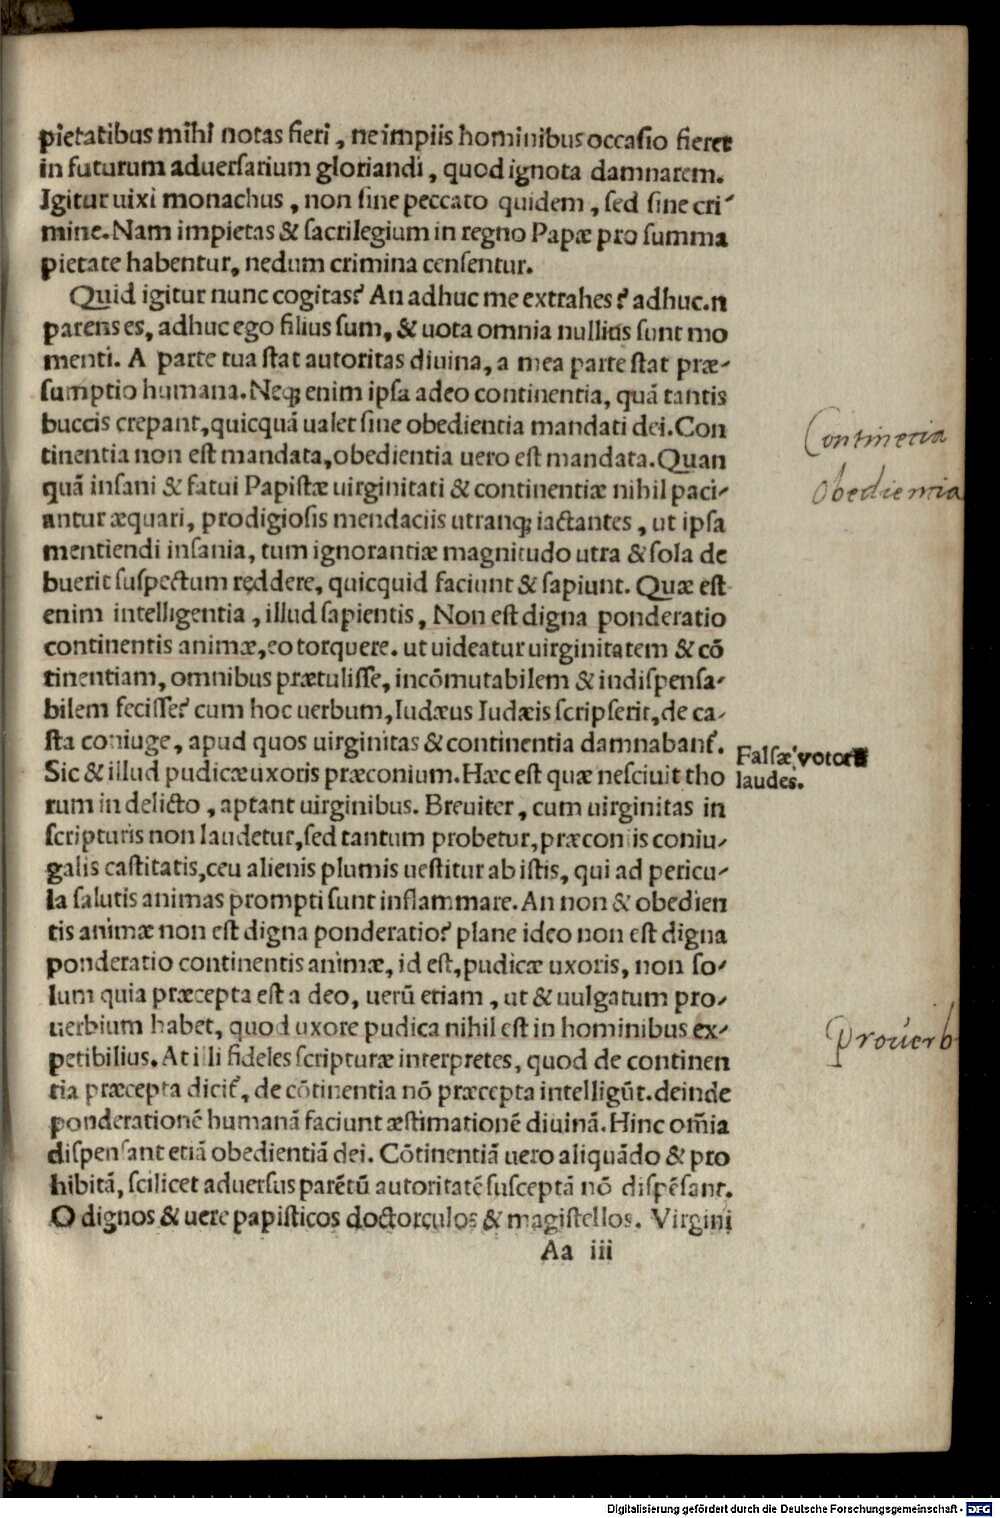 pietatibus mihi notas fieri, ne impiis hominibus occasio fieret
in futurum aduersarium gloriandi, quod ignota damnarem.
Igitur uixi monachus, non sine peccato quidem, sed sine cri-
mine. Nam impietas & sacrilegium in regno Papæ pro summa
pietate habentur, nedum crimina censentur.
Quid igitur nunc cogitas? An adhuc me extrahes? adhuc.n
parens es, adhuc ego filius sum, & uota omnia nullius sunt mo
menti. A parte tua stat autoritas diuina, a mea parte stat præ-
sumptio humana. Neqꝫ enim ipsa adeo continentia, quā tantis
buccis crepant, quicquā ualet sine obedientia mandati dei. Con
tinentia non est mandata, obedientia uero est mandata. Quan
quā insani & fatui Papistæ uirginitati & continentiæ nihil paci-
antur æquari, prodigiosis mendaciis utranqꝫ iactantes, ut ipsa
mentiendi insania, tum ignorantiæ magnitudo utra & sola de
buerit suspectum reddere, quicquid faciunt & sapiunt. Quæ est
enim intelligentia, illud sapientis, Non est digna ponderatio
continentis animæ, eo torquere. ut uideatur uirginitatem & cō
tinentiam, omnibus prætulisse, incōmutabilem & indispensa-
bilem fecisse? cum hoc uerbum, Iudæus Iudæis scripserit, de ca-
sta coniuge, apud quos uirginitas & continentia damnabant᷑.
Sic & illud pudicæ uxoris præconium. Hæc est quæ nesciuit tho
rum in delicto, aptant uirginibus. Breuiter, cum uirginitas in
scripturis non laudetur, sed tantum probetur, præconiis coniu-
galis castitatis, ceu alienis plumis uestitur ab istis, qui ad pericu-
la salutis animas prompti sunt inflammare. An non & obedien
tis animæ non est digna ponderatio? plane ideo non est digna
ponderatio continentis animæ, id est, pudicæ uxoris, non so-
lum quia præcepta est a deo, uerū etiam, ut & uulgatum pro-
uerbium habet, quod uxore pudica nihil est in hominibus ex-
petibilius. At illi fideles scripturæ interpretes, quod de continen
tia præcepta dicit᷑, de cōtinentia nō præcepta intelligūt. deinde
ponderationē humanā faciunt æstimationē diuinā. Hinc om̄ia
dispensant etiā obedientiā dei. Cōtinentiā uero aliquādo & pro
hibitā, scilicet aduersus parētū autoritatē susceptā nō dispēsant.
O dignos & uere papisticos doctorculos & magistellos. Virgini
Aa iii
Continētia
Obedientia
Falsæ votorū
laudes.
Prouerb
Digitalisierung gefördert durch die Deutsche Forschungsgemeinschaft - DFG